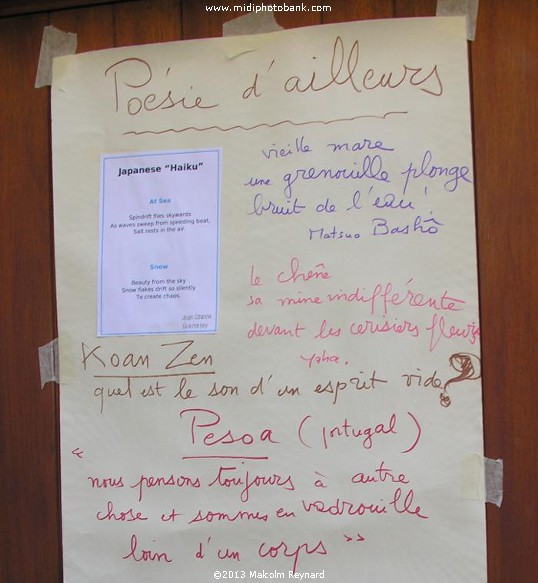 www.midiphotobank.com
Poésie d'ailleurs
Japanese “Haiku”
At Sea
Spindrift flies skywards
As waves sweep from speeding boat,
Salt rests in the air.
Snow
Beauty from the sky
Snow flakes drift so silently
To create chaos.
vieille mare
une grenouille plonge
bruit de l'eau !
Matsuo Bashô
le chêne
sa mine indifférente
devant les cerisiers fleuris
Koan Zen
quel est le son d'un esprit vide ?
Pesoa (portugal)
“ nous pensons toujours à autre
chose et sommes en vadrouille
loin d'un corps ”
©2013 Malcolm Reynard